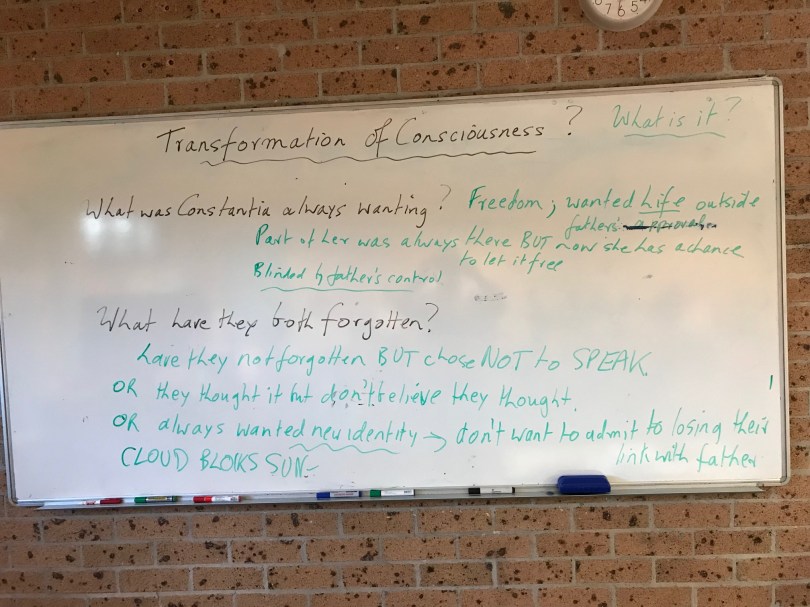 7 6 5
Transformation of Consciousness? What is it?
What was Constantia always wanting? Freedom; wanted Life outside
father's
Part of her was always there BUT now she has a chance
to let it free
Blinded by father's control
What have they both forgotten?
have they not forgotten BUT chose NOT to SPEAK.
OR they thought it but don't believe they thought.
OR always wanted new identity → don't want to admit to losing their
link with father
CLOUD BLOKS SUN-